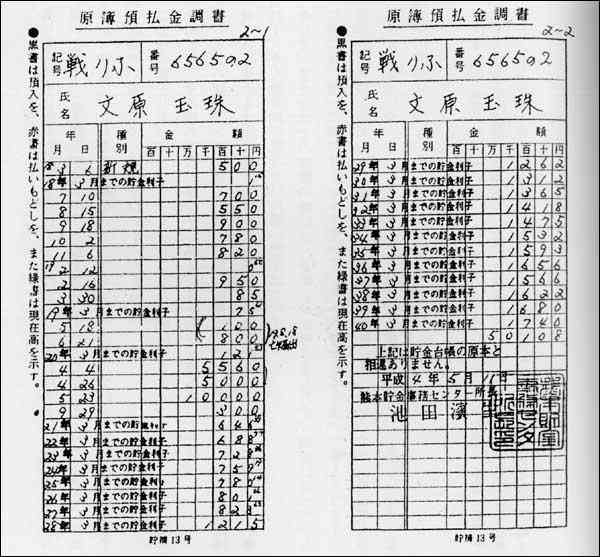 原簿預払金調書
2~1
●黒書は預入を、赤書は払いもどしを、また緑書は現在高を示す。
記号 戦りふ 番号 656502
氏名 文原 玉珠
年 月 日 種別 金額
百 十 万 千 百 十 円
18 3 6 新規 500
18年 3月までの貯金利子
7 10 700
8 15 550
9 18 900
10 2 780
11 6 820
19 2 12
2 16 950
3 30 85
19年 3月までの貯金利子 75
5 18 100
6 21 800
20年 3月までの貯金利子 121
4 4 5560
4 26 5000
5 23 10000
9 29 300
21年 3月までの貯金利子
22年 3月までの貯金利子
23年 3月までの貯金利子
24年 3月までの貯金利子
25年 3月までの貯金利子
26年 3月までの貯金利子
27年 3月までの貯金利子
28年 3月までの貯金利子 1215
貯摘13号
原簿預払金調書
2~2
●黒書は預入を、赤書は払いもどしを、また緑書は現在高を示す。
記号 戦りふ 番号 656502
氏名 文原 玉珠
年 月 日 種別 金額
百 十 万 千 百 十 円
29年 3月までの貯金利子 1262
30年 3月までの貯金利子 1312
31年 3月までの貯金利子 1365
32年 3月までの貯金利子 1418
33年 3月までの貯金利子 1475
34年 3月までの貯金利子 1532
35年 3月までの貯金利子 1593
36年 3月までの貯金利子 1656
37年 3月までの貯金利子 1566
38年 3月までの貯金利子 1622
39年 3月までの貯金利子 1680
40年 3月までの貯金利子 1740
50108
上記は貯金台帳の原本と
相違ありません。
平成 4年 5月 11日
熊本貯金事務センター所長
池田
貯摘13号